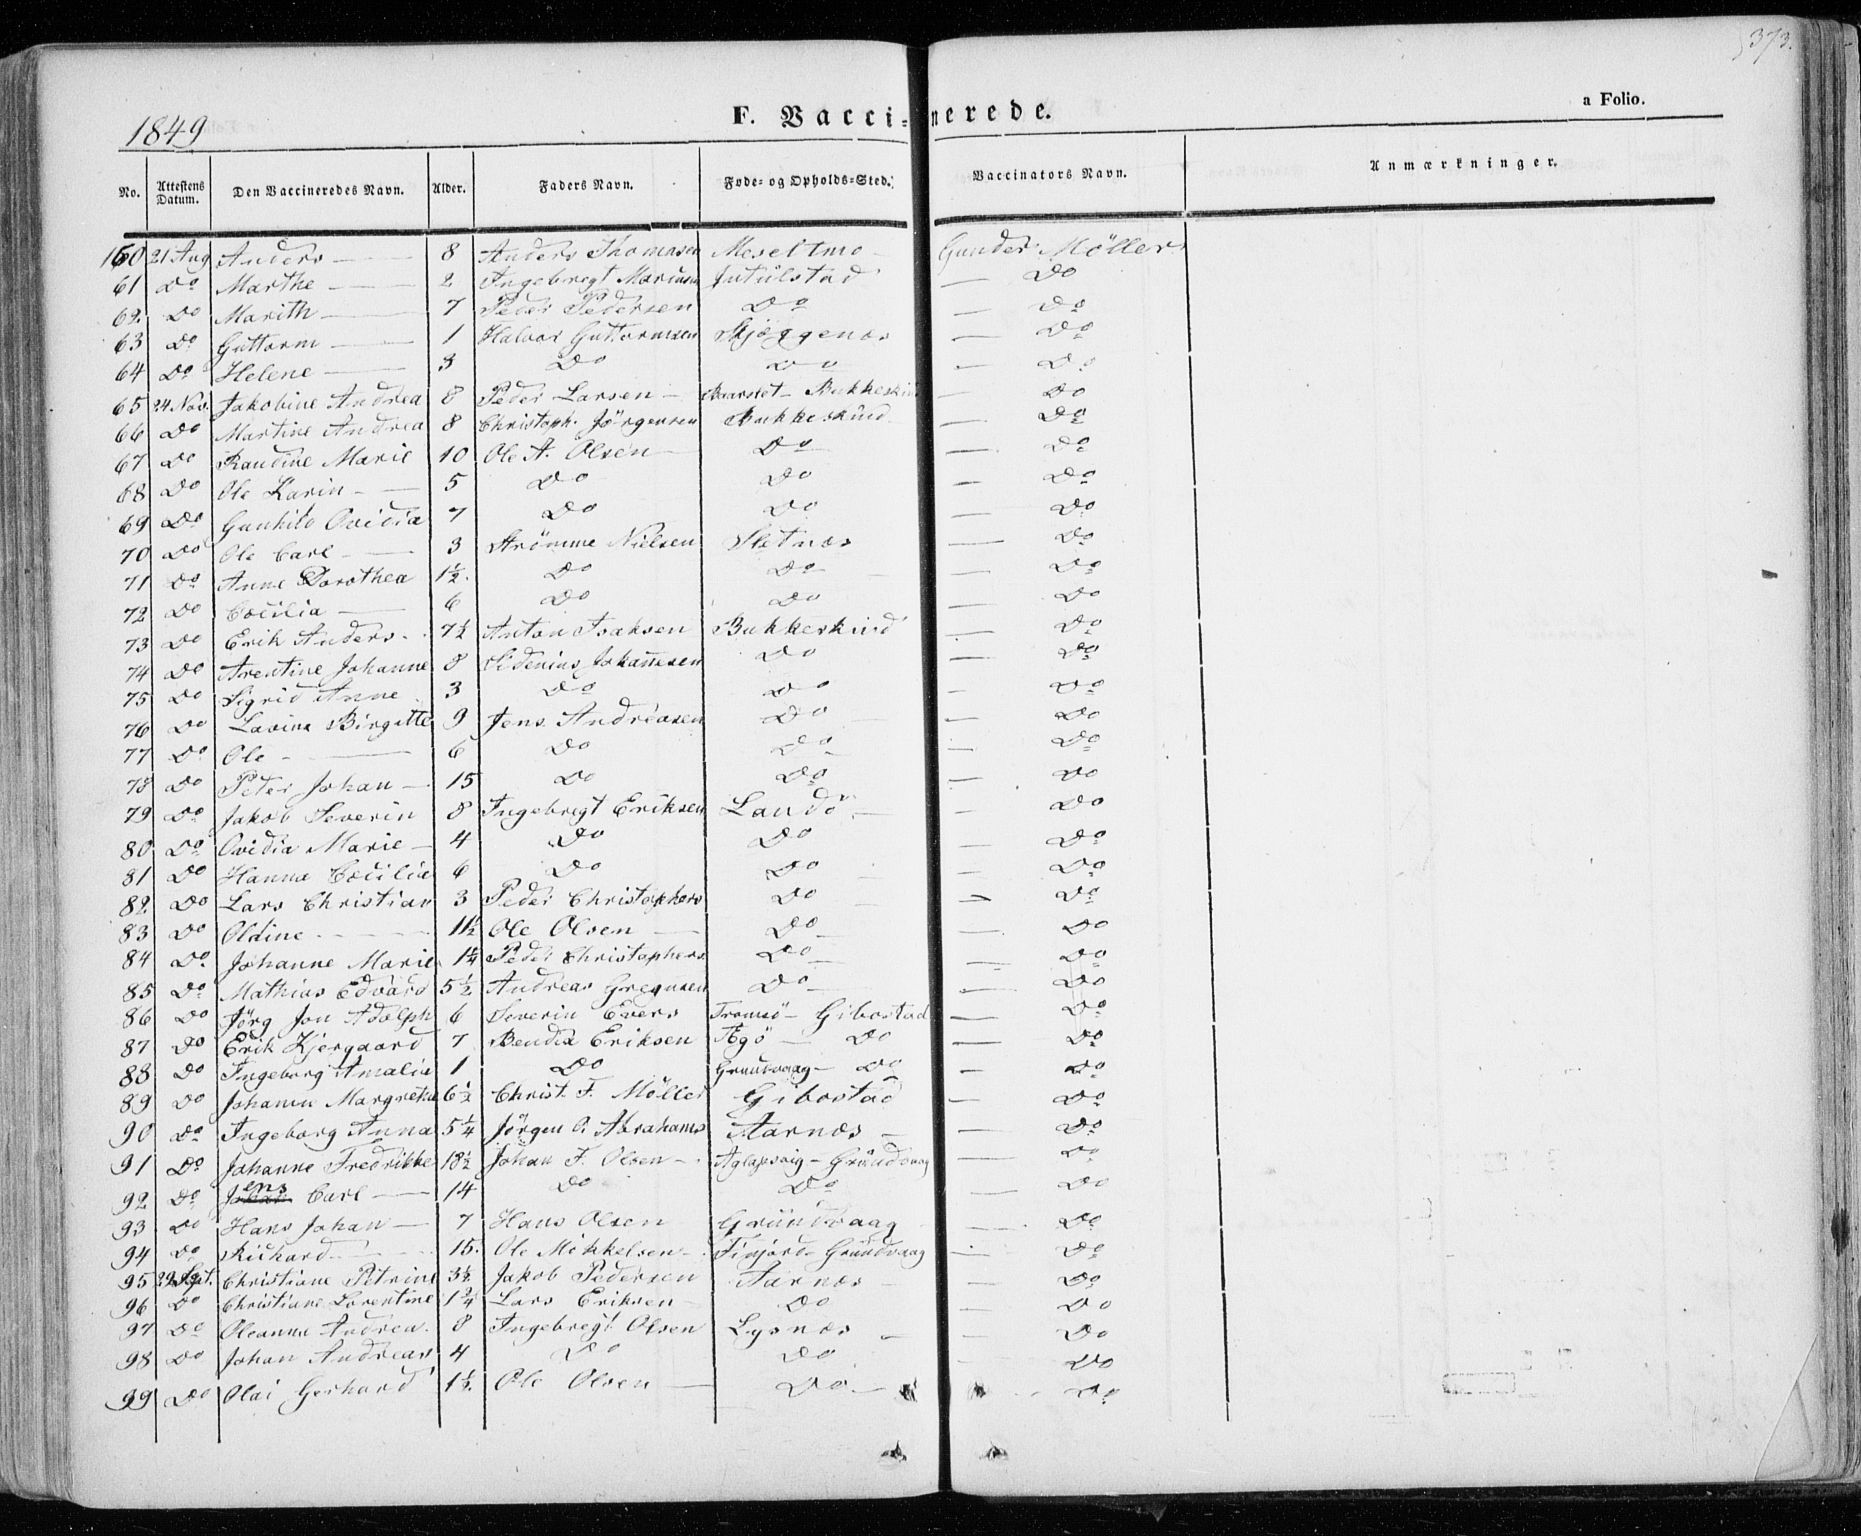 373.
1849
F. Vaccinerede.
a Folio.
No. Attestens Datum. Den Vaccineredes Navn. Alder. Faders Navn. Føde- og Opholds-Sted. Vaccinators Navn. Anmærkninger.
160 21 Aug Anders 8 Anders Thomasen Meseltmo Gunder Möller
61 Do Marthe 2 Ingebregt Do
62. Do Marith 7 Peder Pedersen Do Do
63 Do Guttorm 1 Halvor Guttormsen Skjæggenæs Do
64 Do Helene 3 Do Do Do
65 24 Nov. Jakobine Andrea 8 Peder Larsen Baarstet - Bukkeskind Do
66 Do Martine Andrea 8 Christoph. Jörgensen Bukkeskind Do
67 Do Randine Marie 10 Ole A. Olsen Do Do
68 Do Ole Karin 5 Do Do Do
69 Do Gunhild Ovidia 7 Do Do Do
70 Do Ole Carl 3 Strömme Nielsen Sletnæs Do
71 Do Anne Dorothea 1½. Do Do Do
72 Do Cæcilia 6 Do Do Do
73 Do Erik Anders 7½ Anton Isaksen Bukkeskind Do
74 Do Arentine Johanne 8 Sidenius Johannesen Do Do
75 Do Sigrid Anne 3 Do Do Do
76 Do Lavina Birgitte 9 Jens Andreasen Do Do
77 Do Ole 6 Do Do Do
78 Do Peter Johan 15 Do Do Do
79 Do Jakob Severin 8 Ingebregt Eriksen Landö Do
80 Do Ovidia Marie 4 Do Do Do
81 Do Hanna Cæcilia 6 Do Do Do
82. Do Lars Christian 3 Peder Christophers Do Do
83 Do Oldine 11½ Ole Olsen Do Do
84 Do Johanne Marie 1¼ Peder Christophers Do Do
85 Do Mathias Edvard 5½ Andreas Gregusen Do Do
86 Do Jörg Jon Adolph 6 Severin Evers Tromsö - Gibostad Do
87 Do Erik Kjergaard 7 Bendix Eriksen Do Do
88 Do Ingeborg Amalia 1 Do Grundvaag - Do Do
89 Do Johanne Margrethe 6½ Christ. F. Möller Gibostad Do
90 Do Ingeborg Anna 5¼ Jörgen O. Abrahams Aarnæs Do
91 Do Johanne Fredrikke 18½ Johan F. Olsen Aglapsvig - Grundvaag Do
92 Do Jens Carl 14 Do Do Do
93 Do Hans Johan 7 Hans Olsen Grundvaag Do
94 Do Richard 15. Ole Mikkelsen Finjord - Grundvaag Do
95 29 Sept. Christiane Petrine 3½ Jakob Pedersen Aarnæs Do
96 Do Christiane Lorentine 1¾ Lars Eriksen Do Do
97 Do Oleanna Andrea. 8 Ingebregt Olsen Lysnæs Do
98 Do Johan Andreas 4 Do Do Do
99 Do Olai Gerhard 1½. Ole Olsen Do Do